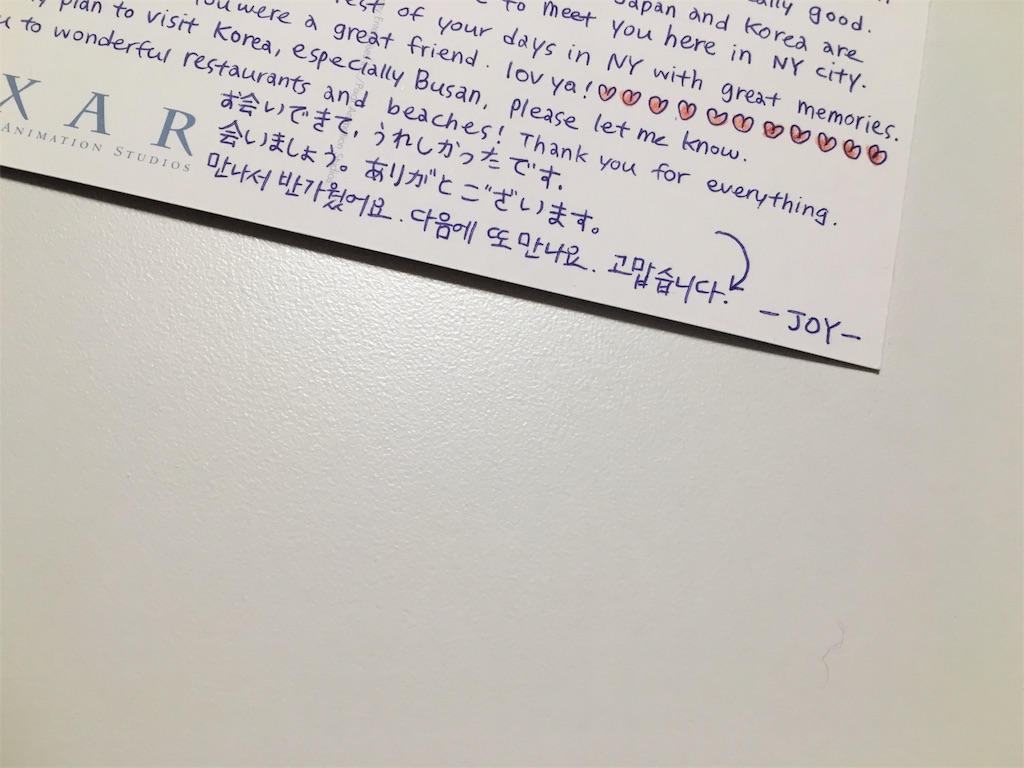 really good.
Japan and Korea are
to meet you here in NY city.
rest of your days in NY with great memories.
You were a great friend. lov ya! ♡♡♡♡♡♡♡♡♡♡♡
plan to visit Korea, especially Busan, please let me know.
to wonderful restaurants and beaches! Thank you for everything.
お会いできて、うれしかったです。
会いましょう。ありがとございます。
만나서 반가웠어요. 다음에 또 만나요. 고맙습니다.
-JOY-
XAR
ANIMATION STUDIOS